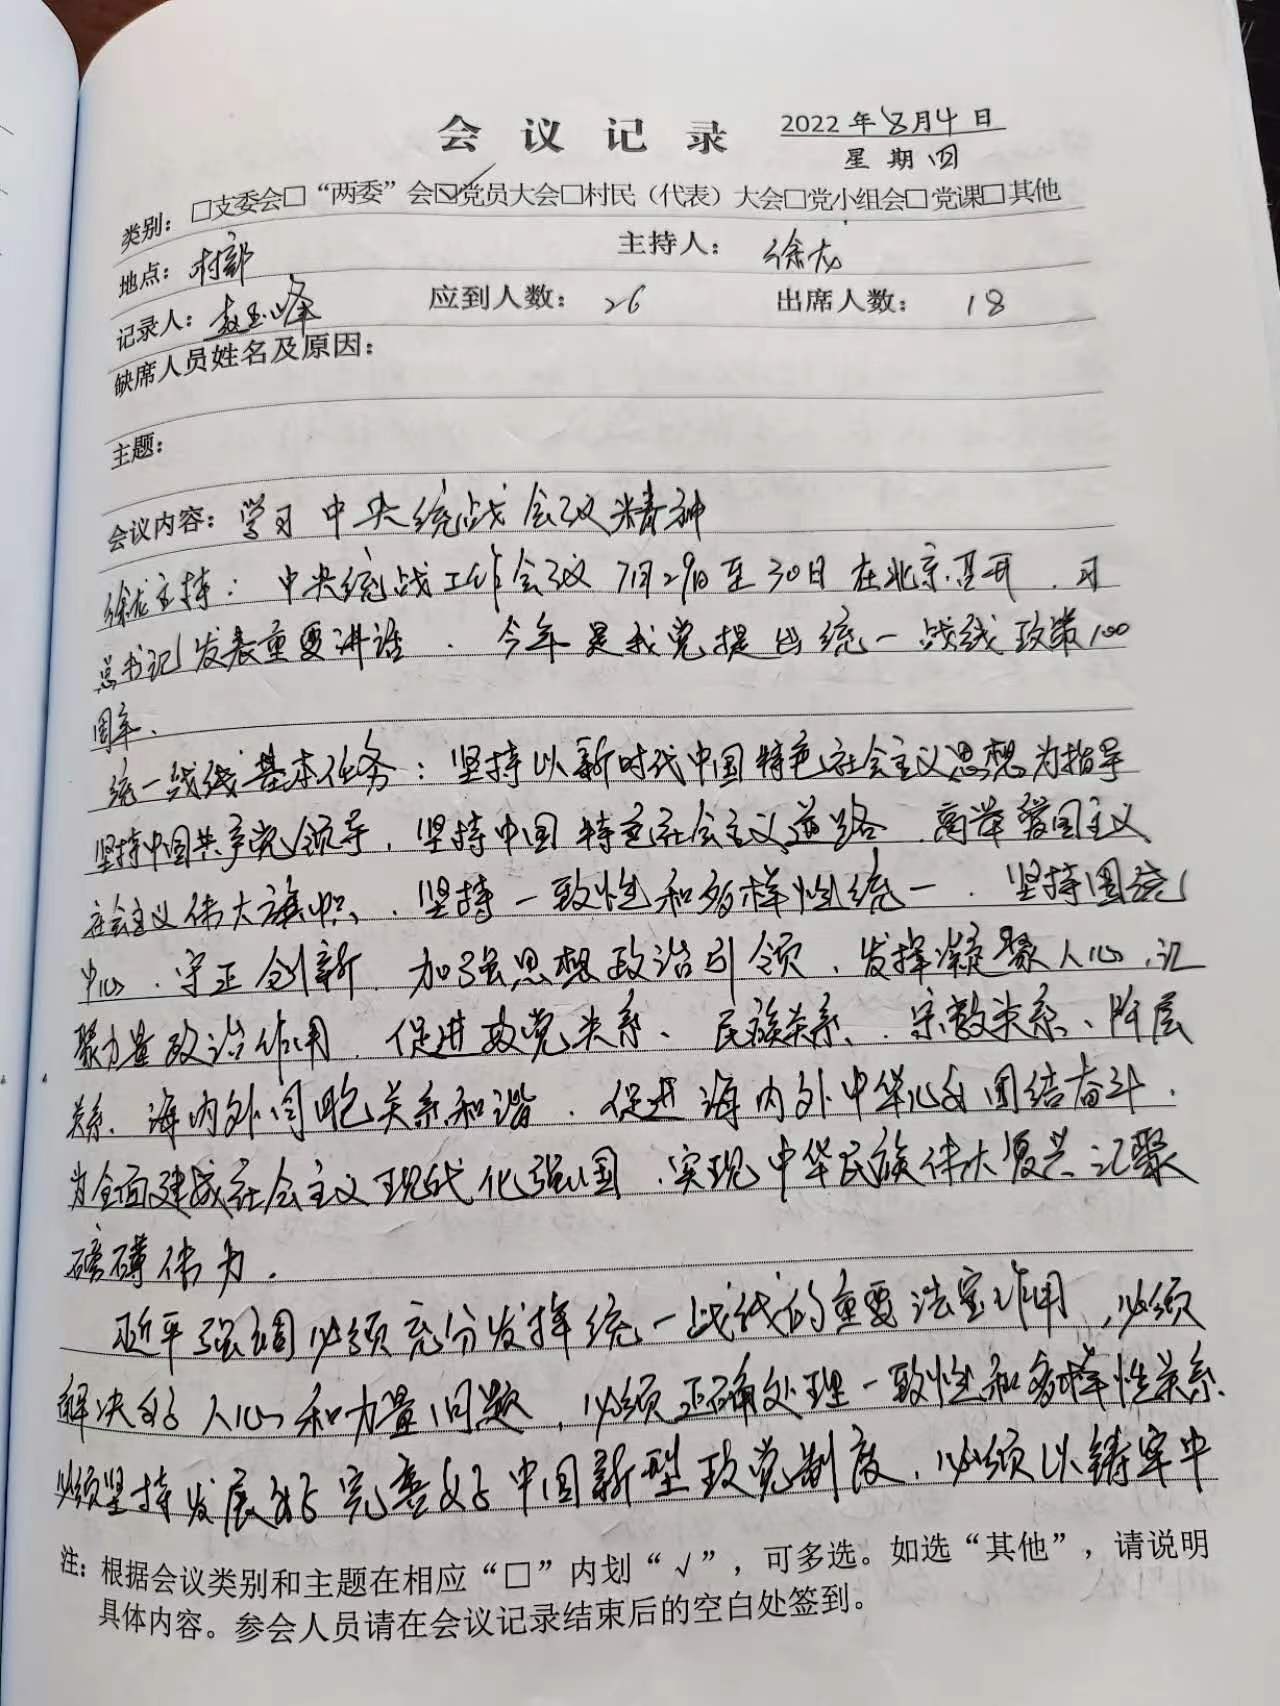 会议记录
2022年8月4日
星期四
类别：□支委会□“两委”会☑党员大会□村民（代表）大会□党小组会□党课□其他
地点：村部 主持人：徐龙
记录人：赵玉峰 应到人数：26 出席人数：18
缺席人员姓名及原因：
主题：
会议内容：学习中央统战会议精神
徐龙主持：中央统战工作会议7月29日至30日在北京召开．习
总书记发表重要讲话．今年是我党提出统一战线政策100
周年．
统一战线基本任务：坚持以新时代中国特色社会主义思想为指导
坚持中国共产党领导，坚持中国特色社会主义道路．高举爱国主义
社会主义伟大旗帜、．坚持一致性和多样性统一．坚持围绕
中心．守正创新．加强思想政治引领．发挥凝聚人心，汇
聚力量政治作用．促进政党关系、民族关系、宗教关系、阶层
关系．海内外同胞关系和谐．促进海内外中华儿女团结奋斗．
为全面建成社会主义现代化强国．实现中华民族伟大复兴汇聚
磅礴伟力．
习近平强调必须充分发挥统一战线的重要法宝作用，必须
解决好人心和力量问题，必须正确处理一致性和多样性关系
必须坚持发展好完善好中国新型政党制度，必须以铸牢中
注：根据会议类别和主题在相应“□”内划“√”，可多选。如选“其他”，请说明
具体内容。参会人员请在会议记录结束后的空白处签到。